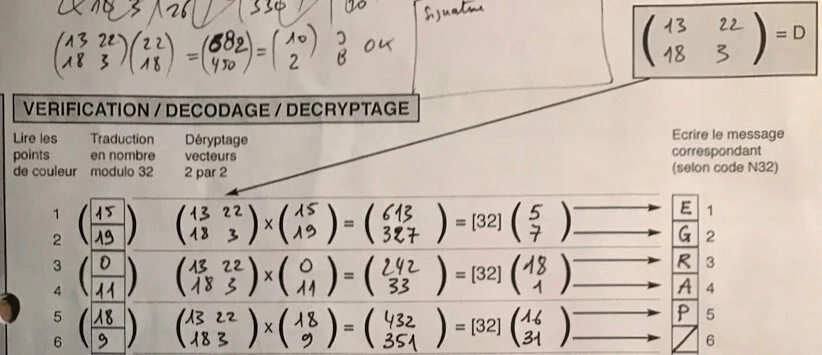 (13 22 / 18 3) (22 / 18) = (682 / 450) = (10 / 2) J B OK
Signature
(13 22 / 18 3) = D
VERIFICATION / DECODAGE / DECRYPTAGE
Lire les points de couleur
Traduction en nombre modulo 32
Déryptage vecteurs 2 par 2
Ecrire le message correspondant (selon code N32)
1 2 (15 / 19) (13 22 / 18 3) × (15 / 19) = (613 / 327) = [32] (5 / 7) E 1 G 2
3 4 (0 / 11) (13 22 / 18 3) × (0 / 11) = (242 / 33) = [32] (18 / 1) R 3 A 4
5 6 (18 / 9) (13 22 / 18 3) × (18 / 9) = (432 / 351) = [32] (16 / 31) P 5 / 6